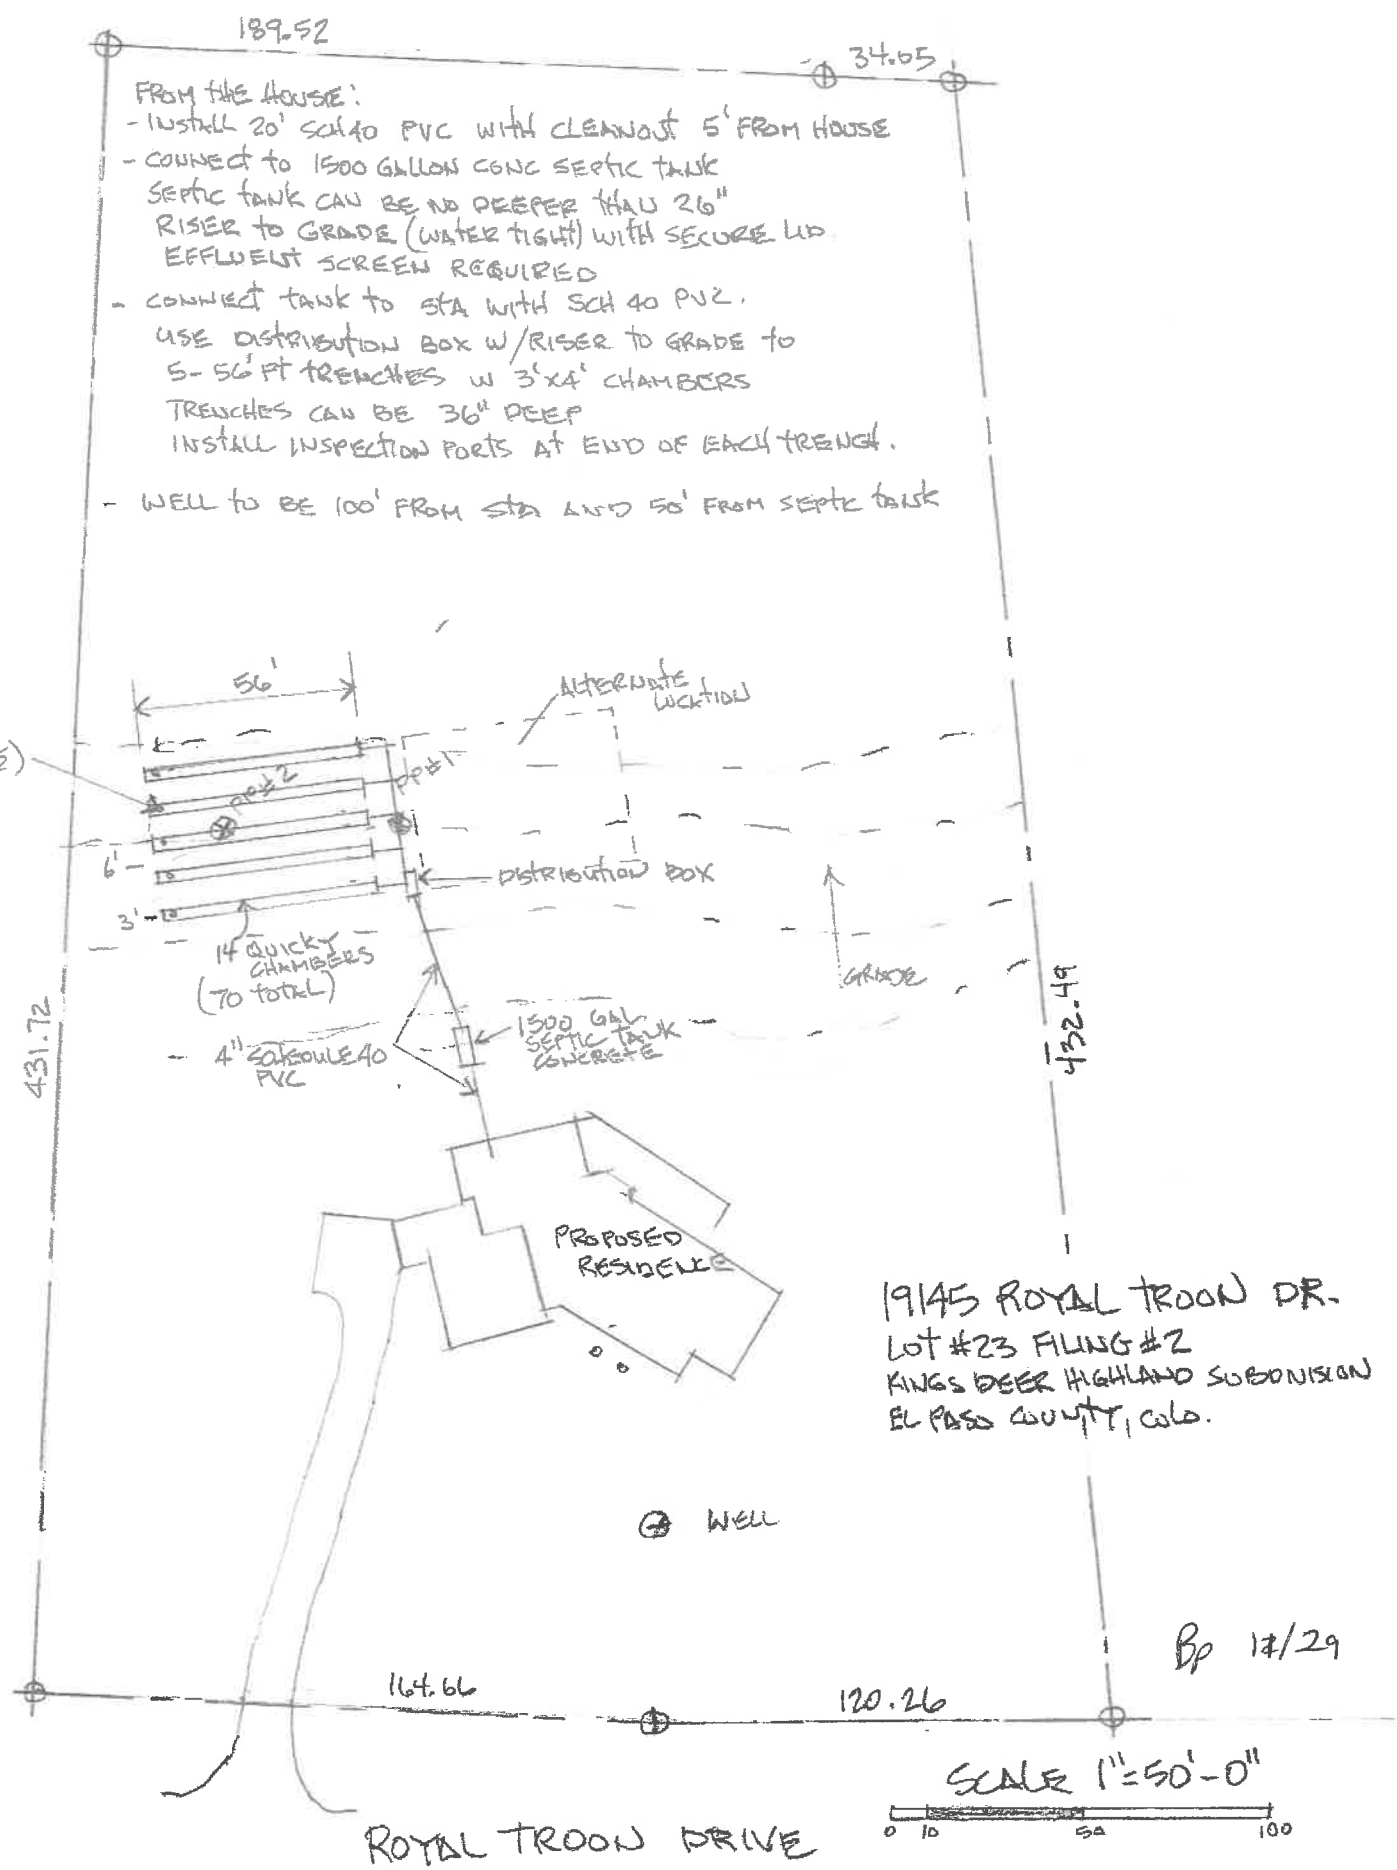 189.52
34.05
FROM THE HOUSE:
- INSTALL 20' SCH 40 PVC WITH CLEANOUT 5' FROM HOUSE
- CONNECT TO 1500 GALLON CONC SEPTIC TANK
SEPTIC TANK CAN BE NO DEEPER THAN 26"
RISER TO GRADE (WATER TIGHT) WITH SECURE LID
EFFLUENT SCREEN REQUIRED
- CONNECT TANK TO STA WITH SCH 40 PVC.
USE DISTRIBUTION BOX W/RISER TO GRADE TO
5- 56' FT TRENCHES W 3'X4' CHAMBERS
TRENCHES CAN BE 36" DEEP
INSTALL INSPECTION PORTS AT END OF EACH TRENCH.
- WELL TO BE 100' FROM STA AND 50' FROM SEPTIC TANK
56'
ALTERNATE
LOCATION
PP#2
PP#1
6'
3'
DISTRIBUTION BOX
14 QUICK4
CHAMBERS
(70 TOTAL)
GRADE
431.72
432.49
4" SCHEDULE 40
PVC
1500 GAL
SEPTIC TANK
CONCRETE
PROPOSED
RESIDENCE
19145 ROYAL TROON DR.
LOT #23 FILING #2
KINGS DEER HIGHLAND SUBDIVISION
EL PASO COUNTY, COLO.
WELL
164.66
120.26
SCALE 1"=50'-0"
0 10 50 100
ROYAL TROON DRIVE